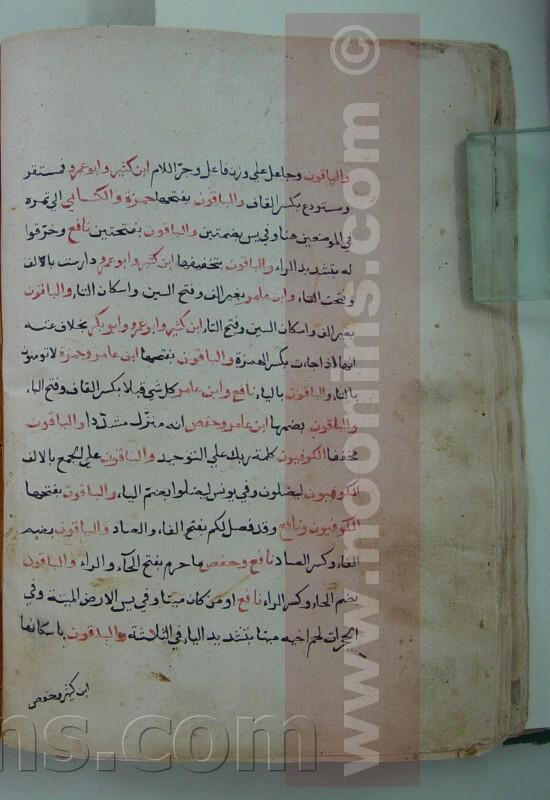 والباقون وجاعل علي وزن فاعل وجرّ اللام ابن كثير وابو عمرو فمستقر
ومستودع بكسر القاف والباقون بفتحها حمزة والكسائي الي ثمره
في الموضعين هنا وفي يس بضمتين والباقون بفتحتين نافع وخرّقوا
له بتشديد الراء والباقون بتخفيفها ابن كثير وابو عمرو دارست بالالف
وفتحت التاء وابن عامر بغير الف وفتح السين واسكان التاء والباقون
بغير الف واسكان السين وفتح التاء ابن كثير وابو عمرو وابو بكر بخلاف عنه
انها اذا جاءت بكسر الهمزة والباقون بفتحها ابن عامر وحمزة لا تومنون
بالتاء والباقون بالياء نافع وابن عامر كل شي قبلا بكسر القاف وفتح الباء
والباقون بضمها ابن عامر وحفص انه منزّل مشدّدا والباقون
مخففا الكوفيون كلمة ربك علي التوحيد والباقون علي الجمع بالالف
الكوفيون ليضلون وفي يونس ليضلوا بضم الياء والباقون بفتحها
الكوفيون ونافع وقد فصل لكم بفتح الفاء والصاد والباقون بضم
الفاء وكسر الصاد نافع وحفص ما حرم بفتح الحاء والراء والباقون
بضم الحاء وكسر الراء نافع او من كان ميتا وفي يس الارض الميتة وفي
الحجرات لحم اخيه ميتا بتشديد الياء في الثلاثة والباقون باسكانها
ابن كثير وحفص
www.noorlins.com ©
ns.com